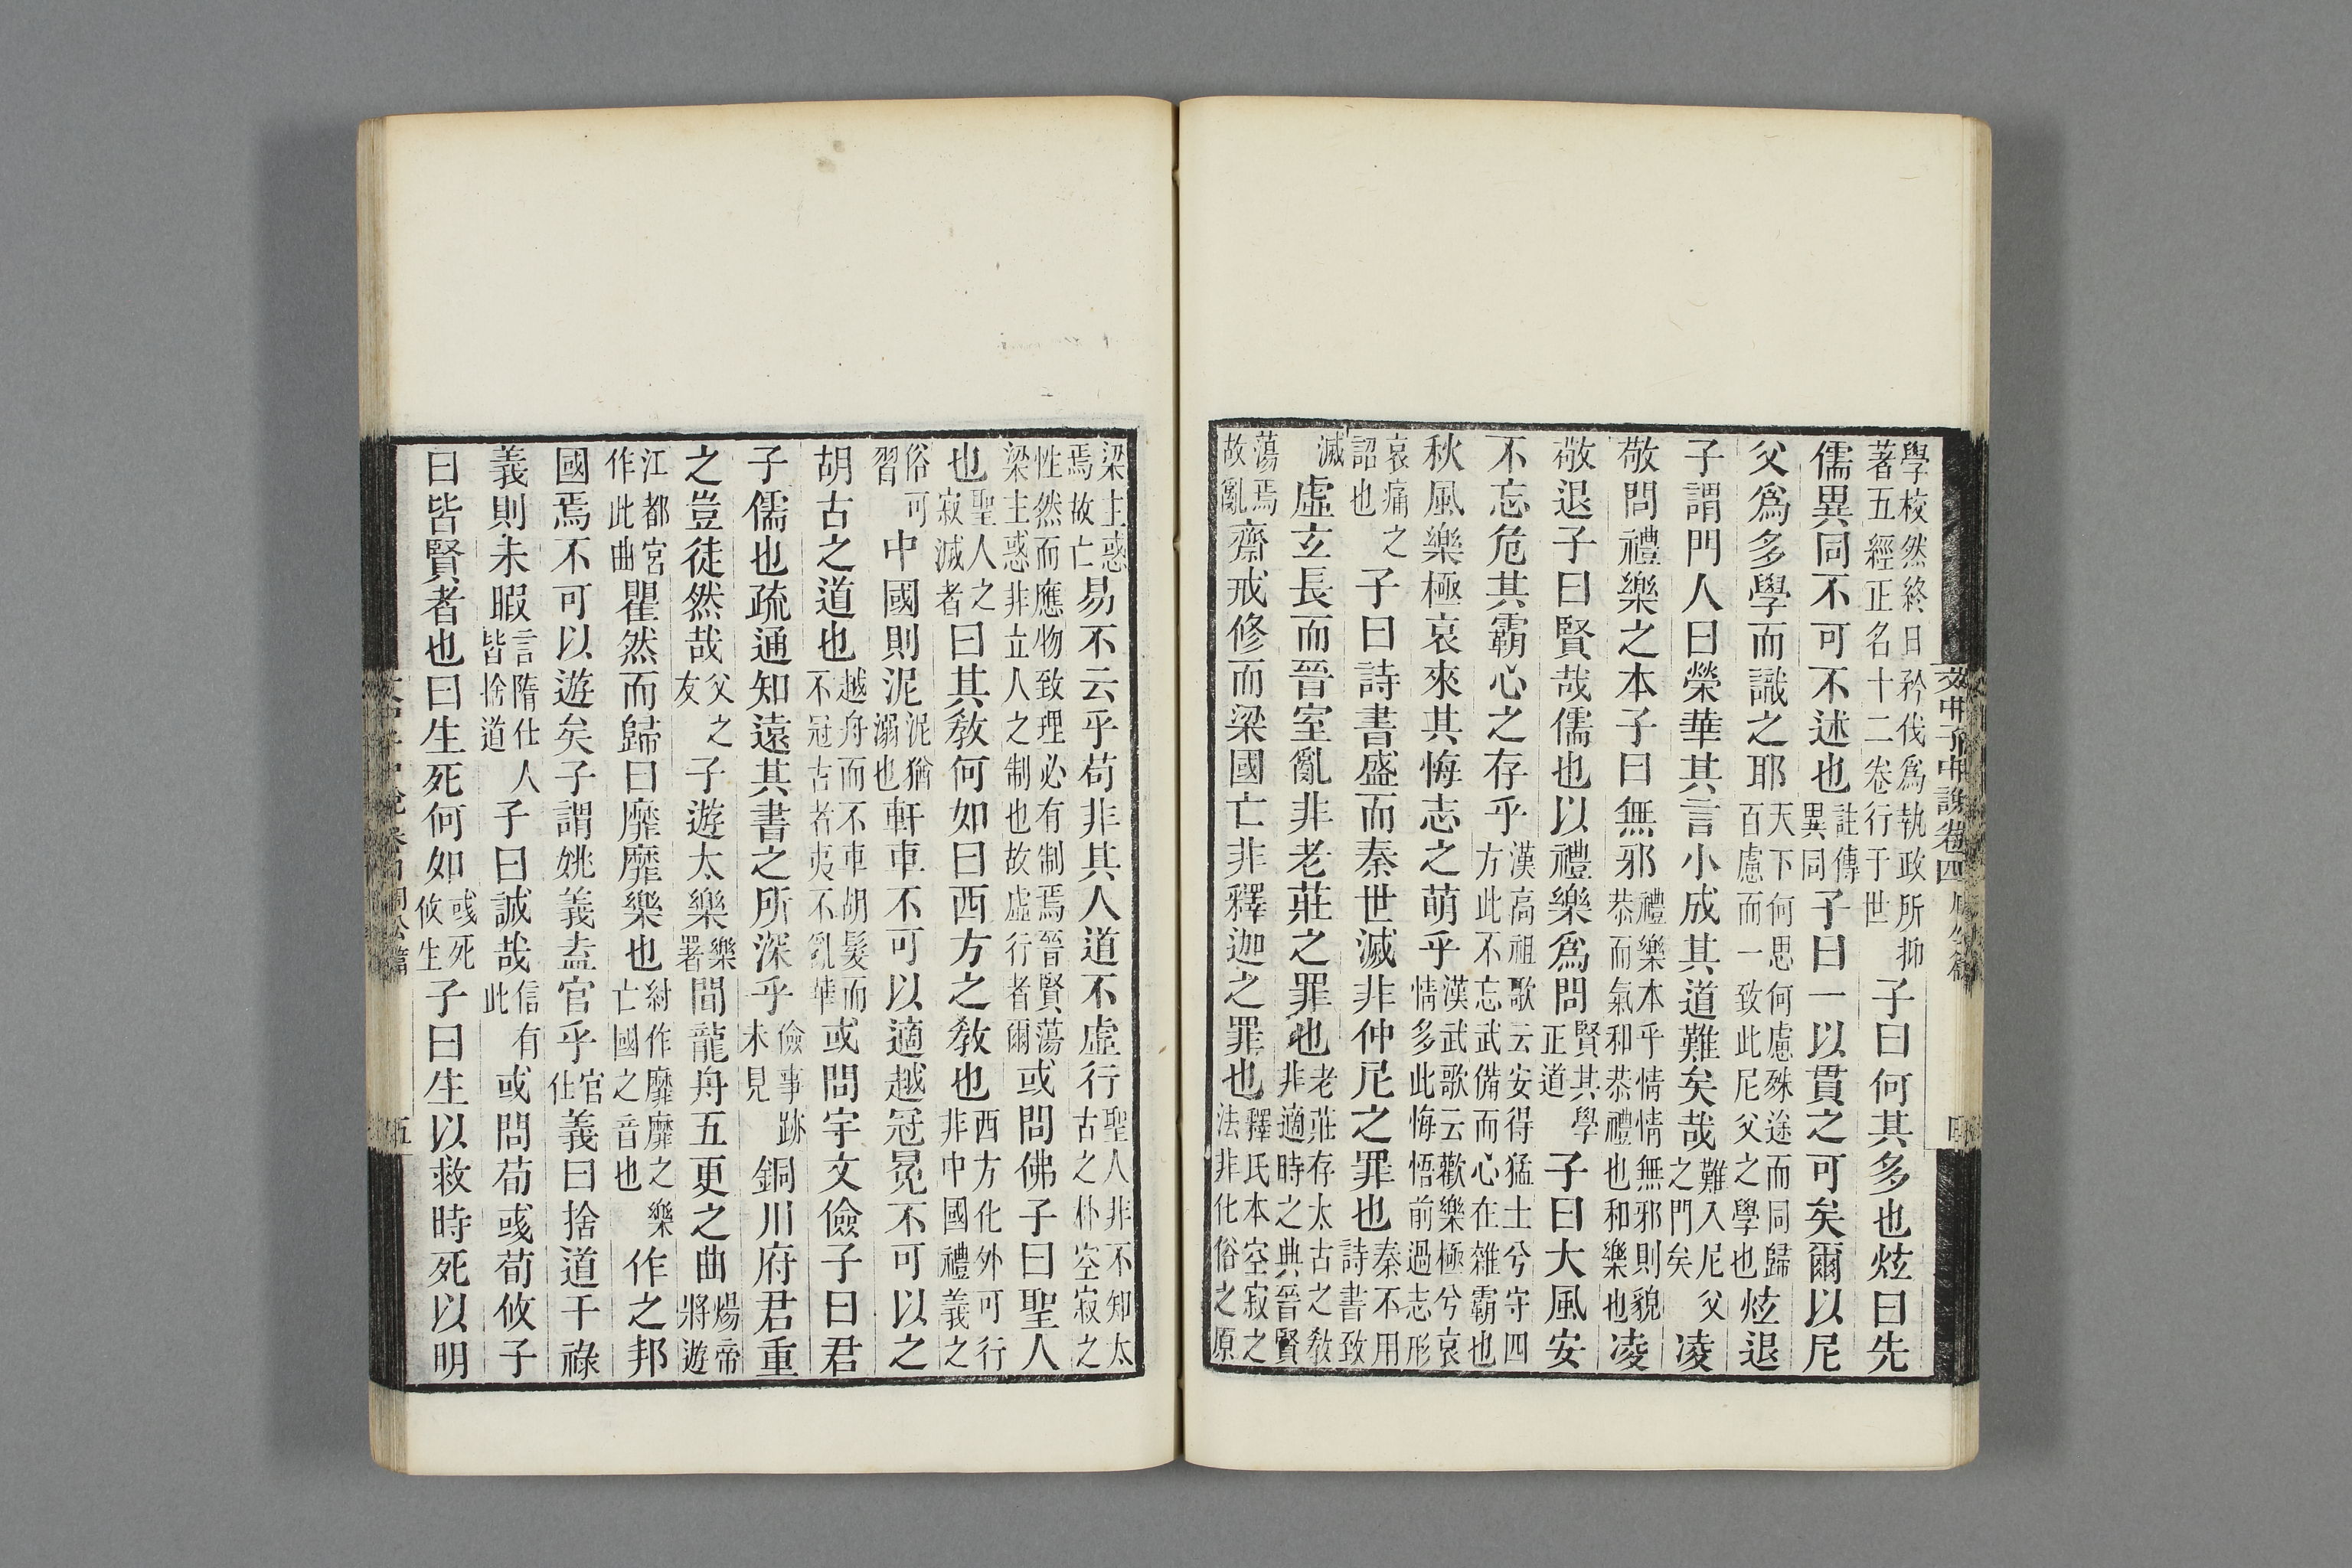 文中子中說卷四
四
學校然終日矜伐爲執政所抑著五經正名十二卷行于世子曰何其多也炫曰先
儒異同不可不述也註傳異同子曰一以貫之可矣爾以尼
父爲多學而識之耶天下何思何慮殊途而同歸百慮而一致此尼父之學也炫退
子謂門人曰榮華其言小成其道難矣哉難入尼父之門矣凌
敬問禮樂之本子曰無邪禮樂本乎情情無邪則貌恭而氣和恭禮也和樂也凌
敬退子曰賢哉儒也以禮樂爲問賢其學正道子曰大風安
不忘危其霸心之存乎漢高祖歌云安得猛士兮守四方此不忘武備而心在雜霸也
秋風樂極哀來其悔志之萌乎漢武歌云歡樂極兮哀情多此悔悟前過志形
哀痛之詔也子曰詩書盛而秦世滅非仲尼之罪也秦不用詩書致
滅虛玄長而晉室亂非老莊之罪也老莊存太古之教非適時之典晉賢
蕩焉故亂齋戒修而梁國亡非釋迦之罪也釋氏本空寂之法非化俗之原
梁主惑焉故亡易不云乎苟非其人道不虛行聖人非不知太古之朴空寂之
性然而應物致理必有制焉晉賢蕩梁主惑非立人之制也故虛行者爾或問佛子曰聖人
也聖人之寂滅者曰其教何如曰西方之教也西方化外可行非中國禮義之
俗可習中國則泥泥猶溺也軒車不可以適越冠冕不可以之
胡古之道也越舟而不車胡髮而不冠古者夷不亂華或問宇文儉子曰君
子儒也疏通知遠其書之所深乎儉事跡未見銅川府君重
之豈徒然哉父之友子遊太樂樂署聞龍舟五更之曲煬帝將遊
江都宮作此曲瞿然而歸曰靡靡樂也紂作靡靡之樂亡國之音也作之邦
國焉不可以遊矣子謂姚義盍官乎官仕義曰捨道干祿
義則未暇言隋仕人皆捨道子曰誠哉信有此或問荀彧荀攸子
曰皆賢者也曰生死何如彧死攸生子曰生以救時死以明
五